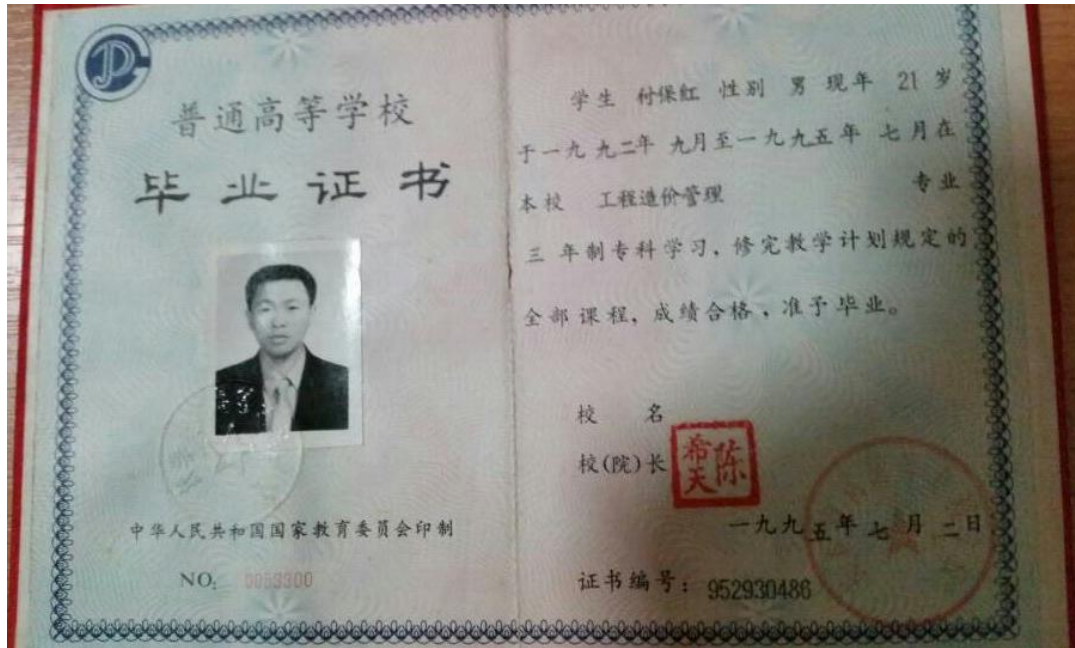 普通高等学校
毕业证书
中华人民共和国国家教育委员会印制
NO: 0053300
学生 付保红 性别 男 现年 21 岁
于一九九二年 九月至一九九五年 七月在
本校 工程造价管理 专业
三 年制专科学习，修完教学计划规定的
全部课程，成绩合格，准予毕业。
校 名
校(院)长 陈希天
一九九五年 七月 二日
证书编号：952930486